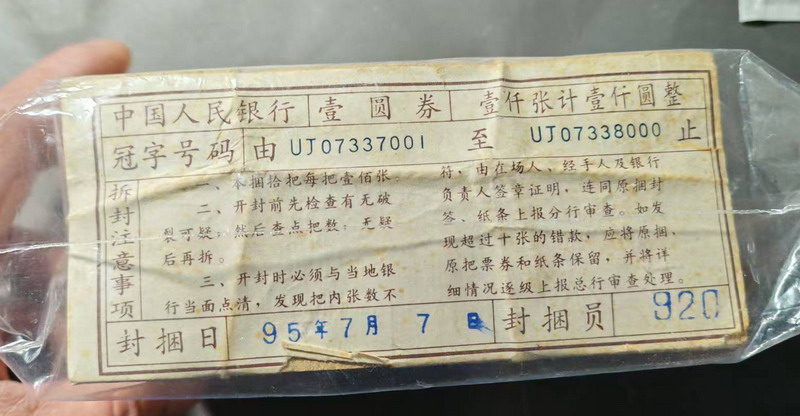 中国人民银行 壹圆券 壹仟张计壹仟圆整
冠字号码 由 UJ07337001 至 UJ07338000 止
拆封注意事项
一、本捆拾把每把壹佰张。
二、开封前先检查有无破
裂可疑；然后查点把数；无疑
后再拆。
三、开封时必须与当地银
行当面点清，发现把内张数不
符，由在场人、经手人及银行
负责人签章证明，连同原捆封
签、纸条上报分行审查。如发
现超过十张的错款，应将原捆、
原把票券和纸条保留，并将详
细情况逐级上报总行审查处理。
封捆日 95年7月7日 封捆员 920